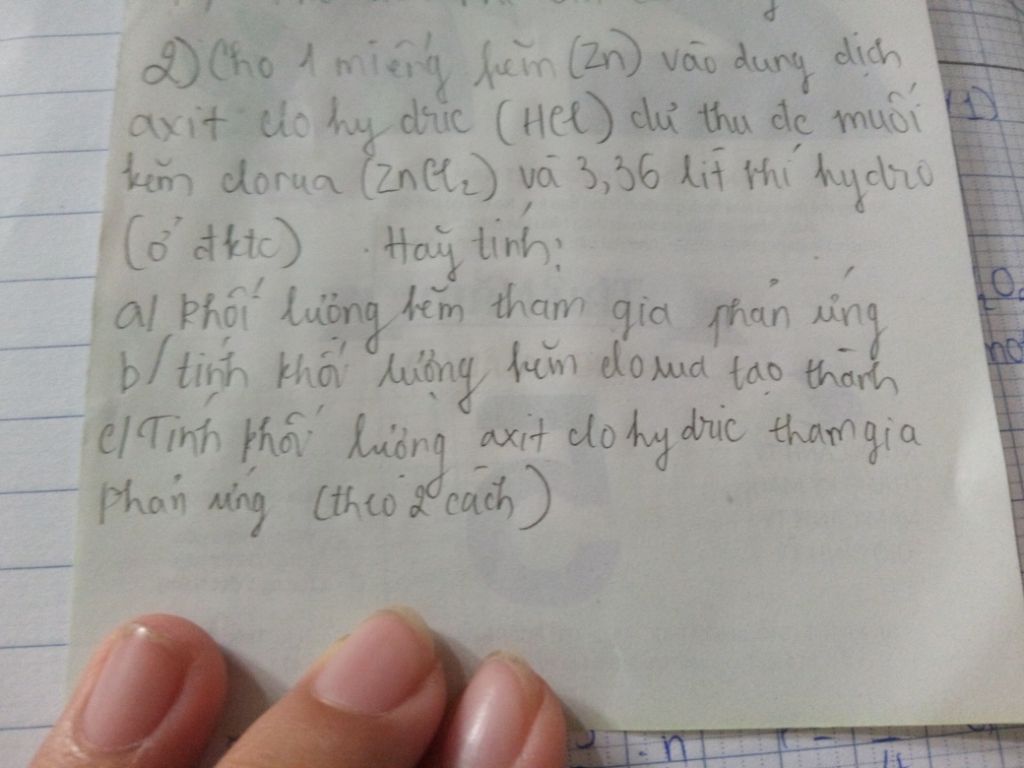 2) Cho 1 miếng kẽm (Zn) vào dung dịch
axit clo hy dric (HCl) dư thu đc muối
kẽm clorua (ZnCl2) và 3,36 lít khí hydro
(ở đktc) . Hãy tính:
a/ khối lượng kẽm tham gia phản ứng
b/ tính khối lượng kẽm clorua tạo thành
c/ Tính khối lượng axit clo hy dric tham gia
phản ứng (theo 2 cách)
1)
. n